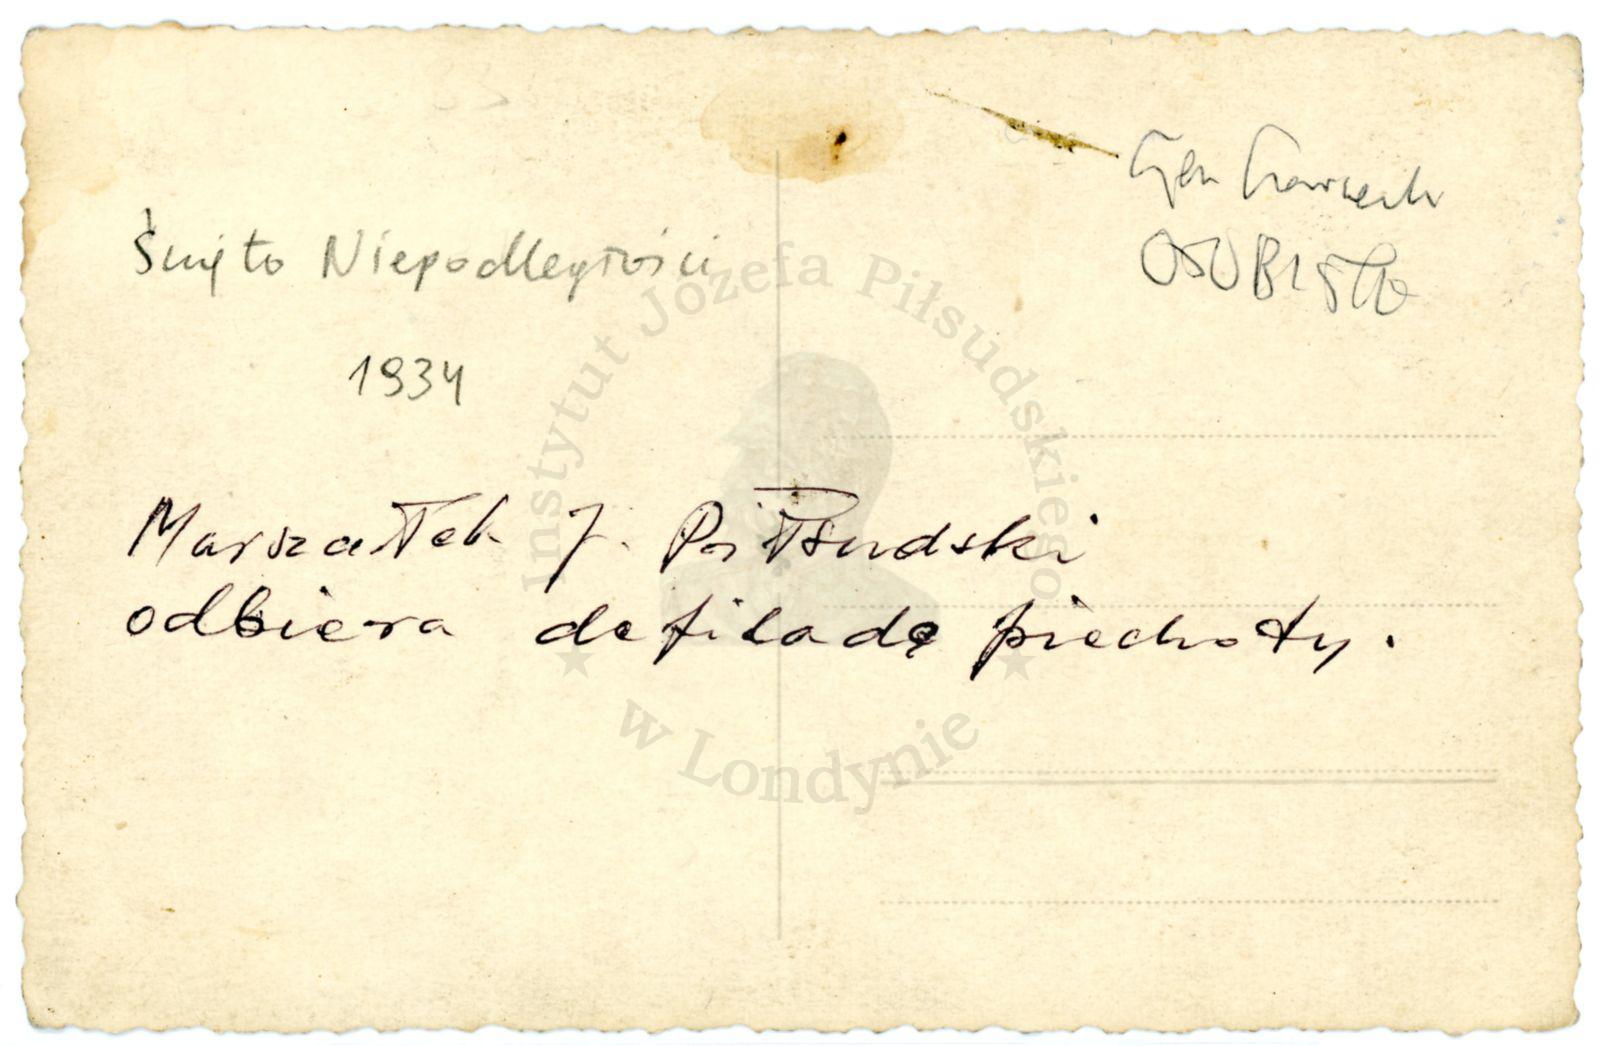 Święto Niepodległości
1934
OSOBISTE
Marszałek J. Piłsudski
odbiera defiladę piechoty.
Instytut Józefa Piłsudskiego
w Londynie